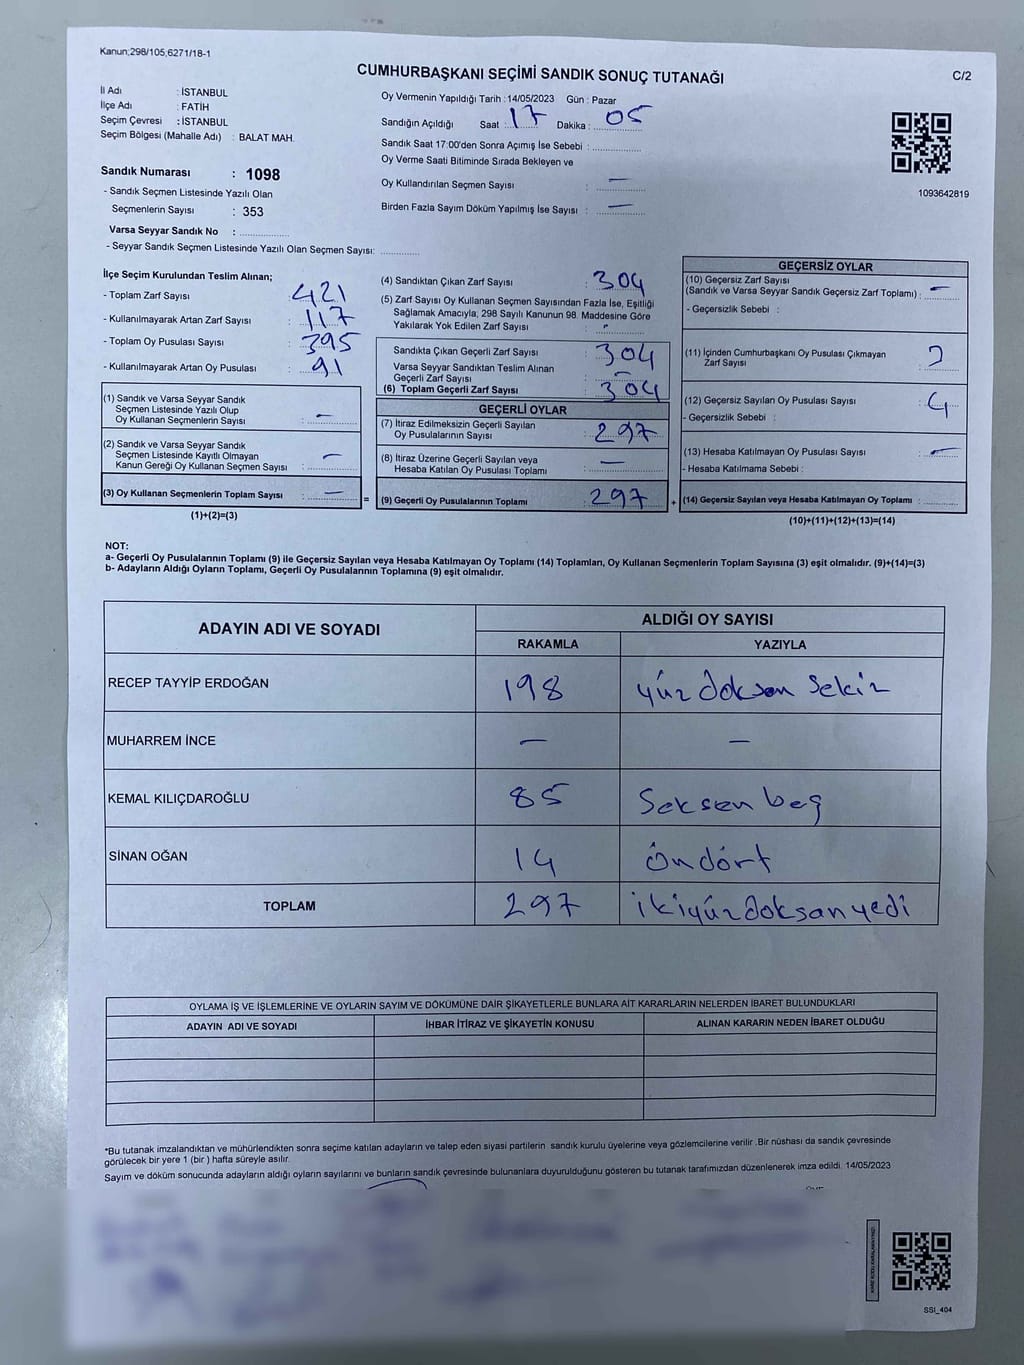 Kanun;298/105;6271/18-1
CUMHURBAŞKANI SEÇİMİ SANDIK SONUÇ TUTANAĞI
C/2
İl Adı : İSTANBUL
İlçe Adı : FATİH
Seçim Çevresi : İSTANBUL
Seçim Bölgesi (Mahalle Adı) : BALAT MAH.
Oy Vermenin Yapıldığı Tarih : 14/05/2023 Gün : Pazar
Sandığın Açıldığı Saat : 17 Dakika : 05
Sandık Saat 17:00'den Sonra Açılmış İse Sebebi :
Oy Verme Saati Bitiminde Sırada Bekleyen ve
Oy Kullandırılan Seçmen Sayısı : —
Birden Fazla Sayım Döküm Yapılmış İse Sayısı : —
1093642819
Sandık Numarası : 1098
- Sandık Seçmen Listesinde Yazılı Olan
Seçmenlerin Sayısı : 353
Varsa Seyyar Sandık No :
- Seyyar Sandık Seçmen Listesinde Yazılı Olan Seçmen Sayısı:
İlçe Seçim Kurulundan Teslim Alınan;
- Toplam Zarf Sayısı : 421
- Kullanılmayarak Artan Zarf Sayısı : 117
- Toplam Oy Pusulası Sayısı : 395
- Kullanılmayarak Artan Oy Pusulası : 91
(1) Sandık ve Varsa Seyyar Sandık
Seçmen Listesinde Yazılı Olup
Oy Kullanan Seçmenlerin Sayısı : —
(2) Sandık ve Varsa Seyyar Sandık
Seçmen Listesinde Kayıtlı Olmayan
Kanun Gereği Oy Kullanan Seçmen Sayısı : —
(3) Oy Kullanan Seçmenlerin Toplam Sayısı : — =
(1)+(2)=(3)
(4) Sandıktan Çıkan Zarf Sayısı : 304
(5) Zarf Sayısı Oy Kullanan Seçmen Sayısından Fazla İse, Eşitliği
Sağlamak Amacıyla, 298 Sayılı Kanunun 98. Maddesine Göre
Yakılarak Yok Edilen Zarf Sayısı :
Sandıkta Çıkan Geçerli Zarf Sayısı : 304
Varsa Seyyar Sandıktan Teslim Alınan
Geçerli Zarf Sayısı : —
(6) Toplam Geçerli Zarf Sayısı : 304
GEÇERLİ OYLAR
(7) İtiraz Edilmeksizin Geçerli Sayılan
Oy Pusulalarının Sayısı : 297
(8) İtiraz Üzerine Geçerli Sayılan veya
Hesaba Katılan Oy Pusulası Toplamı : —
(9) Geçerli Oy Pusulalarının Toplamı : 297 +
GEÇERSİZ OYLAR
(10) Geçersiz Zarf Sayısı
(Sandık ve Varsa Seyyar Sandık Geçersiz Zarf Toplamı) : —
- Geçersizlik Sebebi :
(11) İçinden Cumhurbaşkanı Oy Pusulası Çıkmayan
Zarf Sayısı :
(12) Geçersiz Sayılan Oy Pusulası Sayısı : 4
- Geçersizlik Sebebi :
(13) Hesaba Katılmayan Oy Pusulası Sayısı : —
- Hesaba Katılmama Sebebi :
(14) Geçersiz Sayılan veya Hesaba Katılmayan Oy Toplamı :
(10)+(11)+(12)+(13)=(14)
NOT:
a- Geçerli Oy Pusulalarının Toplamı (9) ile Geçersiz Sayılan veya Hesaba Katılmayan Oy Toplamı (14) Toplamları, Oy Kullanan Seçmenlerin Toplam Sayısına (3) eşit olmalıdır. (9)+(14)=(3)
b- Adayların Aldığı Oyların Toplamı, Geçerli Oy Pusulalarının Toplamına (9) eşit olmalıdır.
ADAYIN ADI VE SOYADI ALDIĞI OY SAYISI
RAKAMLA YAZIYLA
RECEP TAYYİP ERDOĞAN 198 yüz doksan sekiz
MUHARREM İNCE — —
KEMAL KILIÇDAROĞLU 85 Seksen beş
SİNAN OĞAN 14 Öndört
TOPLAM 297 ikiyüzdoksanyedi
OYLAMA İŞ VE İŞLEMLERİNE VE OYLARIN SAYIM VE DÖKÜMÜNE DAİR ŞİKAYETLERLE BUNLARA AİT KARARLARIN NELERDEN İBARET BULUNDUKLARI
ADAYIN ADI VE SOYADI İHBAR İTİRAZ VE ŞİKAYETİN KONUSU ALINAN KARARIN NEDEN İBARET OLDUĞU
*Bu tutanak imzalandıktan ve mühürlendikten sonra seçime katılan adayların ve talep eden siyasi partilerin sandık kurulu üyelerine veya gözlemcilerine verilir .Bir nüshası da sandık çevresinde
görülecek bir yere 1 (bir ) hafta süreyle asılır.
Sayım ve döküm sonucunda adayların aldığı oyların sayılarını ve bunların sandık çevresinde bulunanlara duyurulduğunu gösteren bu tutanak tarafımızdan düzenlenerek imza edildi. 14/05/2023
SSİ_404